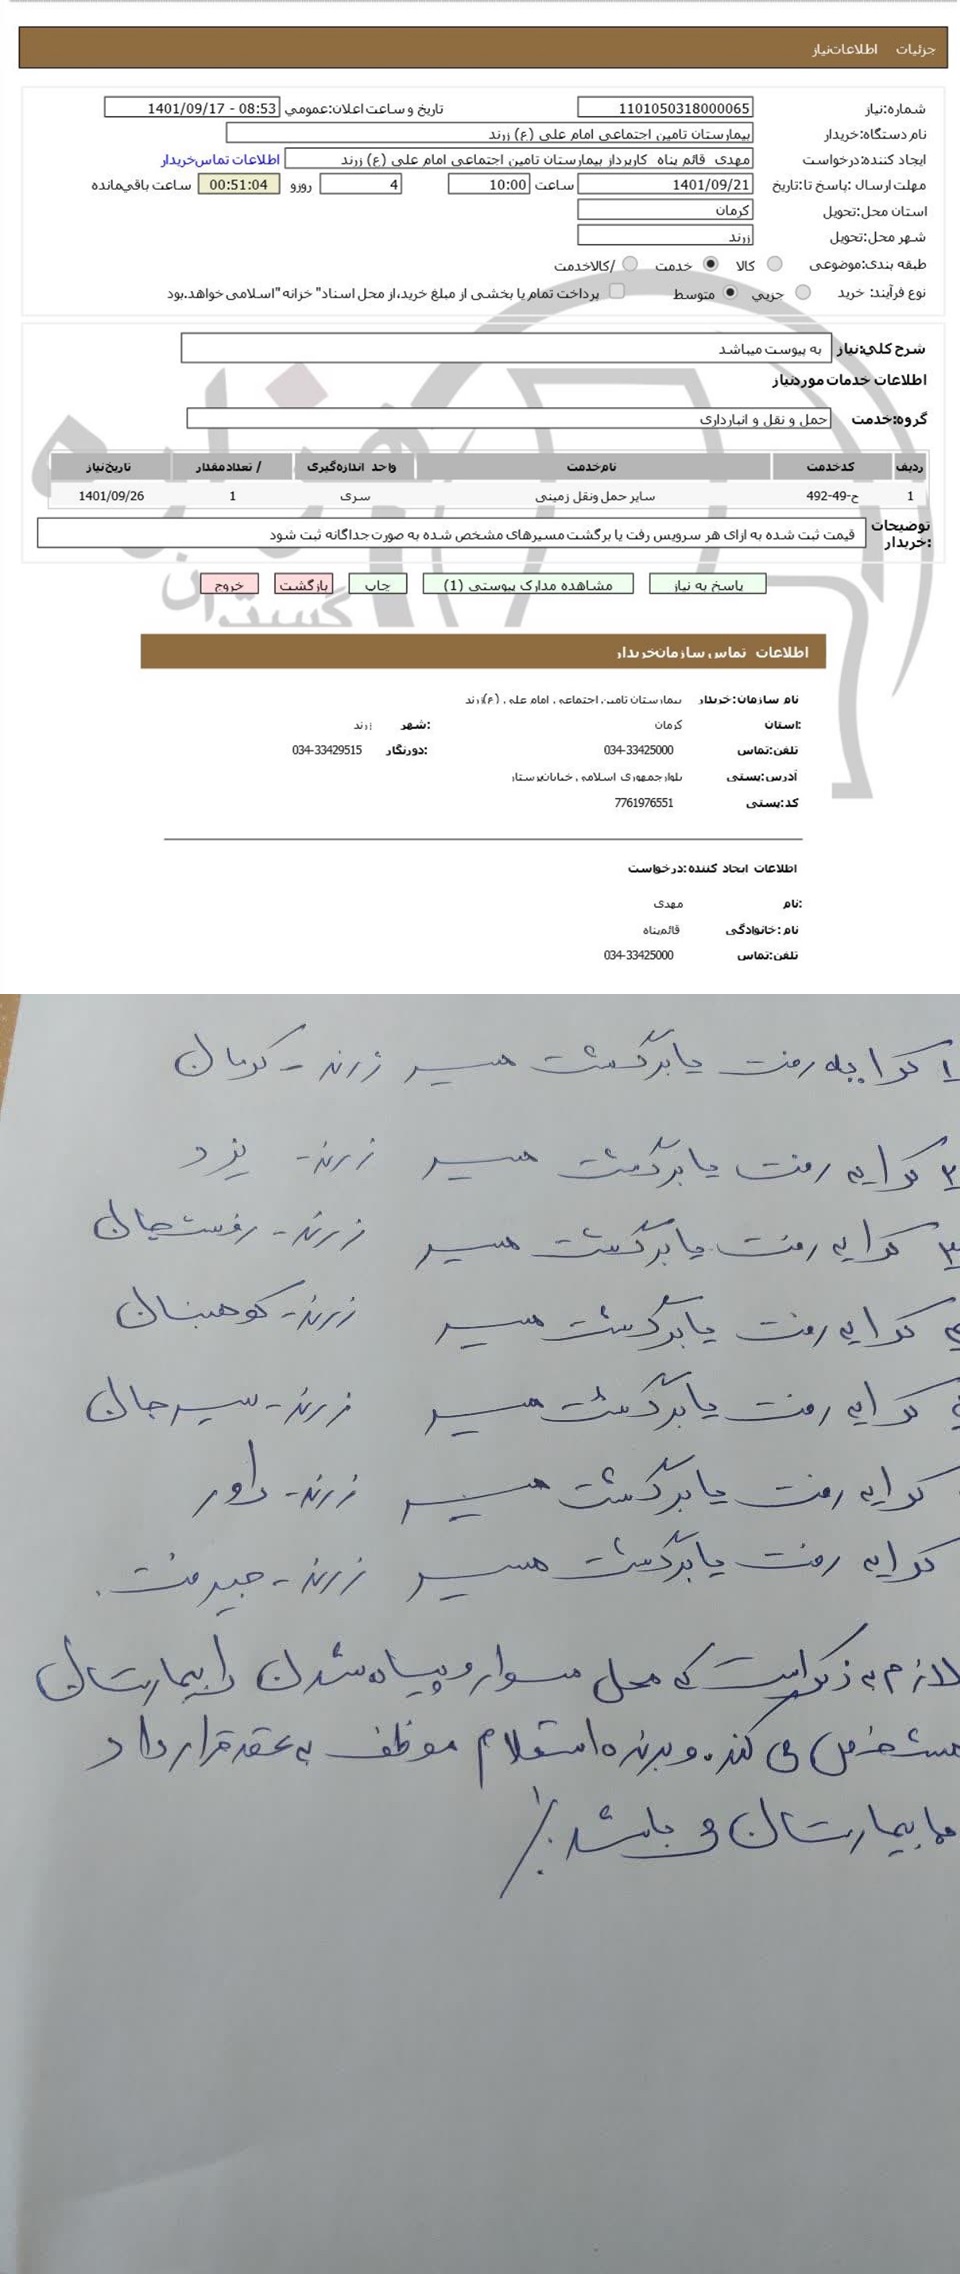 جزئیات اطلاعات نیاز
شماره نیاز: 1101050318000065 تاریخ و ساعت اعلان عمومي: 1401/09/17 - 08:53
نام دستگاه خریدار: بیمارستان تامین اجتماعی امام علی (ع) زرند
ایجاد کننده درخواست: مهدی قائم پناه کارپرداز بیمارستان تامین اجتماعی امام علی (ع) زرند اطلاعات تماس خریدار
مهلت ارسال پاسخ تا: تاریخ: 1401/09/21 ساعت 10:00 4 روزو 00:51:04 ساعت باقي‌مانده
استان محل تحویل: کرمان
شهر محل تحویل: زرند
طبقه بندی موضوعی: کالا خدمت کالا/خدمت
نوع فرآیند خرید: جزیي متوسط پرداخت تمام یا بخشی از مبلغ خرید،از محل "اسناد خزانه اسلامی" خواهد بود.
شرح کلي نیاز: به پیوست میباشد
اطلاعات خدمات مورد نیاز
گروه خدمت: حمل و نقل و انبارداری
ردیف کد خدمت نام خدمت واحد اندازه گیری تعداد / مقدار تاریخ نیاز
1 ح-49-492 سایر حمل ونقل زمینی سری 1 1401/09/26
توضیحات خریدار: قیمت ثبت شده به ازای هر سرویس رفت یا برگشت مسیرهای مشخص شده به صورت جداگانه ثبت شود
پاسخ به نیاز مشاهده مدارک پیوستی (1) چاپ بازگشت خروج
هزاره
گستران
اطلاعات تماس سازمان خریدار
نام سازمان خریدار: بیمارستان تامین اجتماعی امام علی (ع)زرند
استان: کرمان شهر: زرند
تلفن تماس: 034-33425000 دورنگار: 034-33429515
آدرس پستی: بلوارجمهوری اسلامی خیابان پرستار
کد پستی: 7761976551
اطلاعات ایجاد کننده درخواست:
نام: مهدی
نام خانوادگی: قائم پناه
تلفن تماس: 034-33425000
۱ کرایه رفت یا برگشت مسیر زرند - کرمان
۲ کرایه رفت یا برگشت مسیر زرند - یزد
۳ کرایه رفت یا برگشت مسیر زرند - رفسنجان
کرایه رفت یا برگشت مسیر زرند - کوهبنان
کرایه رفت یا برگشت مسیر زرند - سیرجان
کرایه رفت یا برگشت مسیر زرند - راور
کرایه رفت یا برگشت مسیر زرند - جیرفت.
لازم به ذکر است که محل سوار و پیاده شدن را بیمارستان
مشخص می کند. و برنده استعلام موظف به عقد قرارداد
با بیمارستان می باشد.